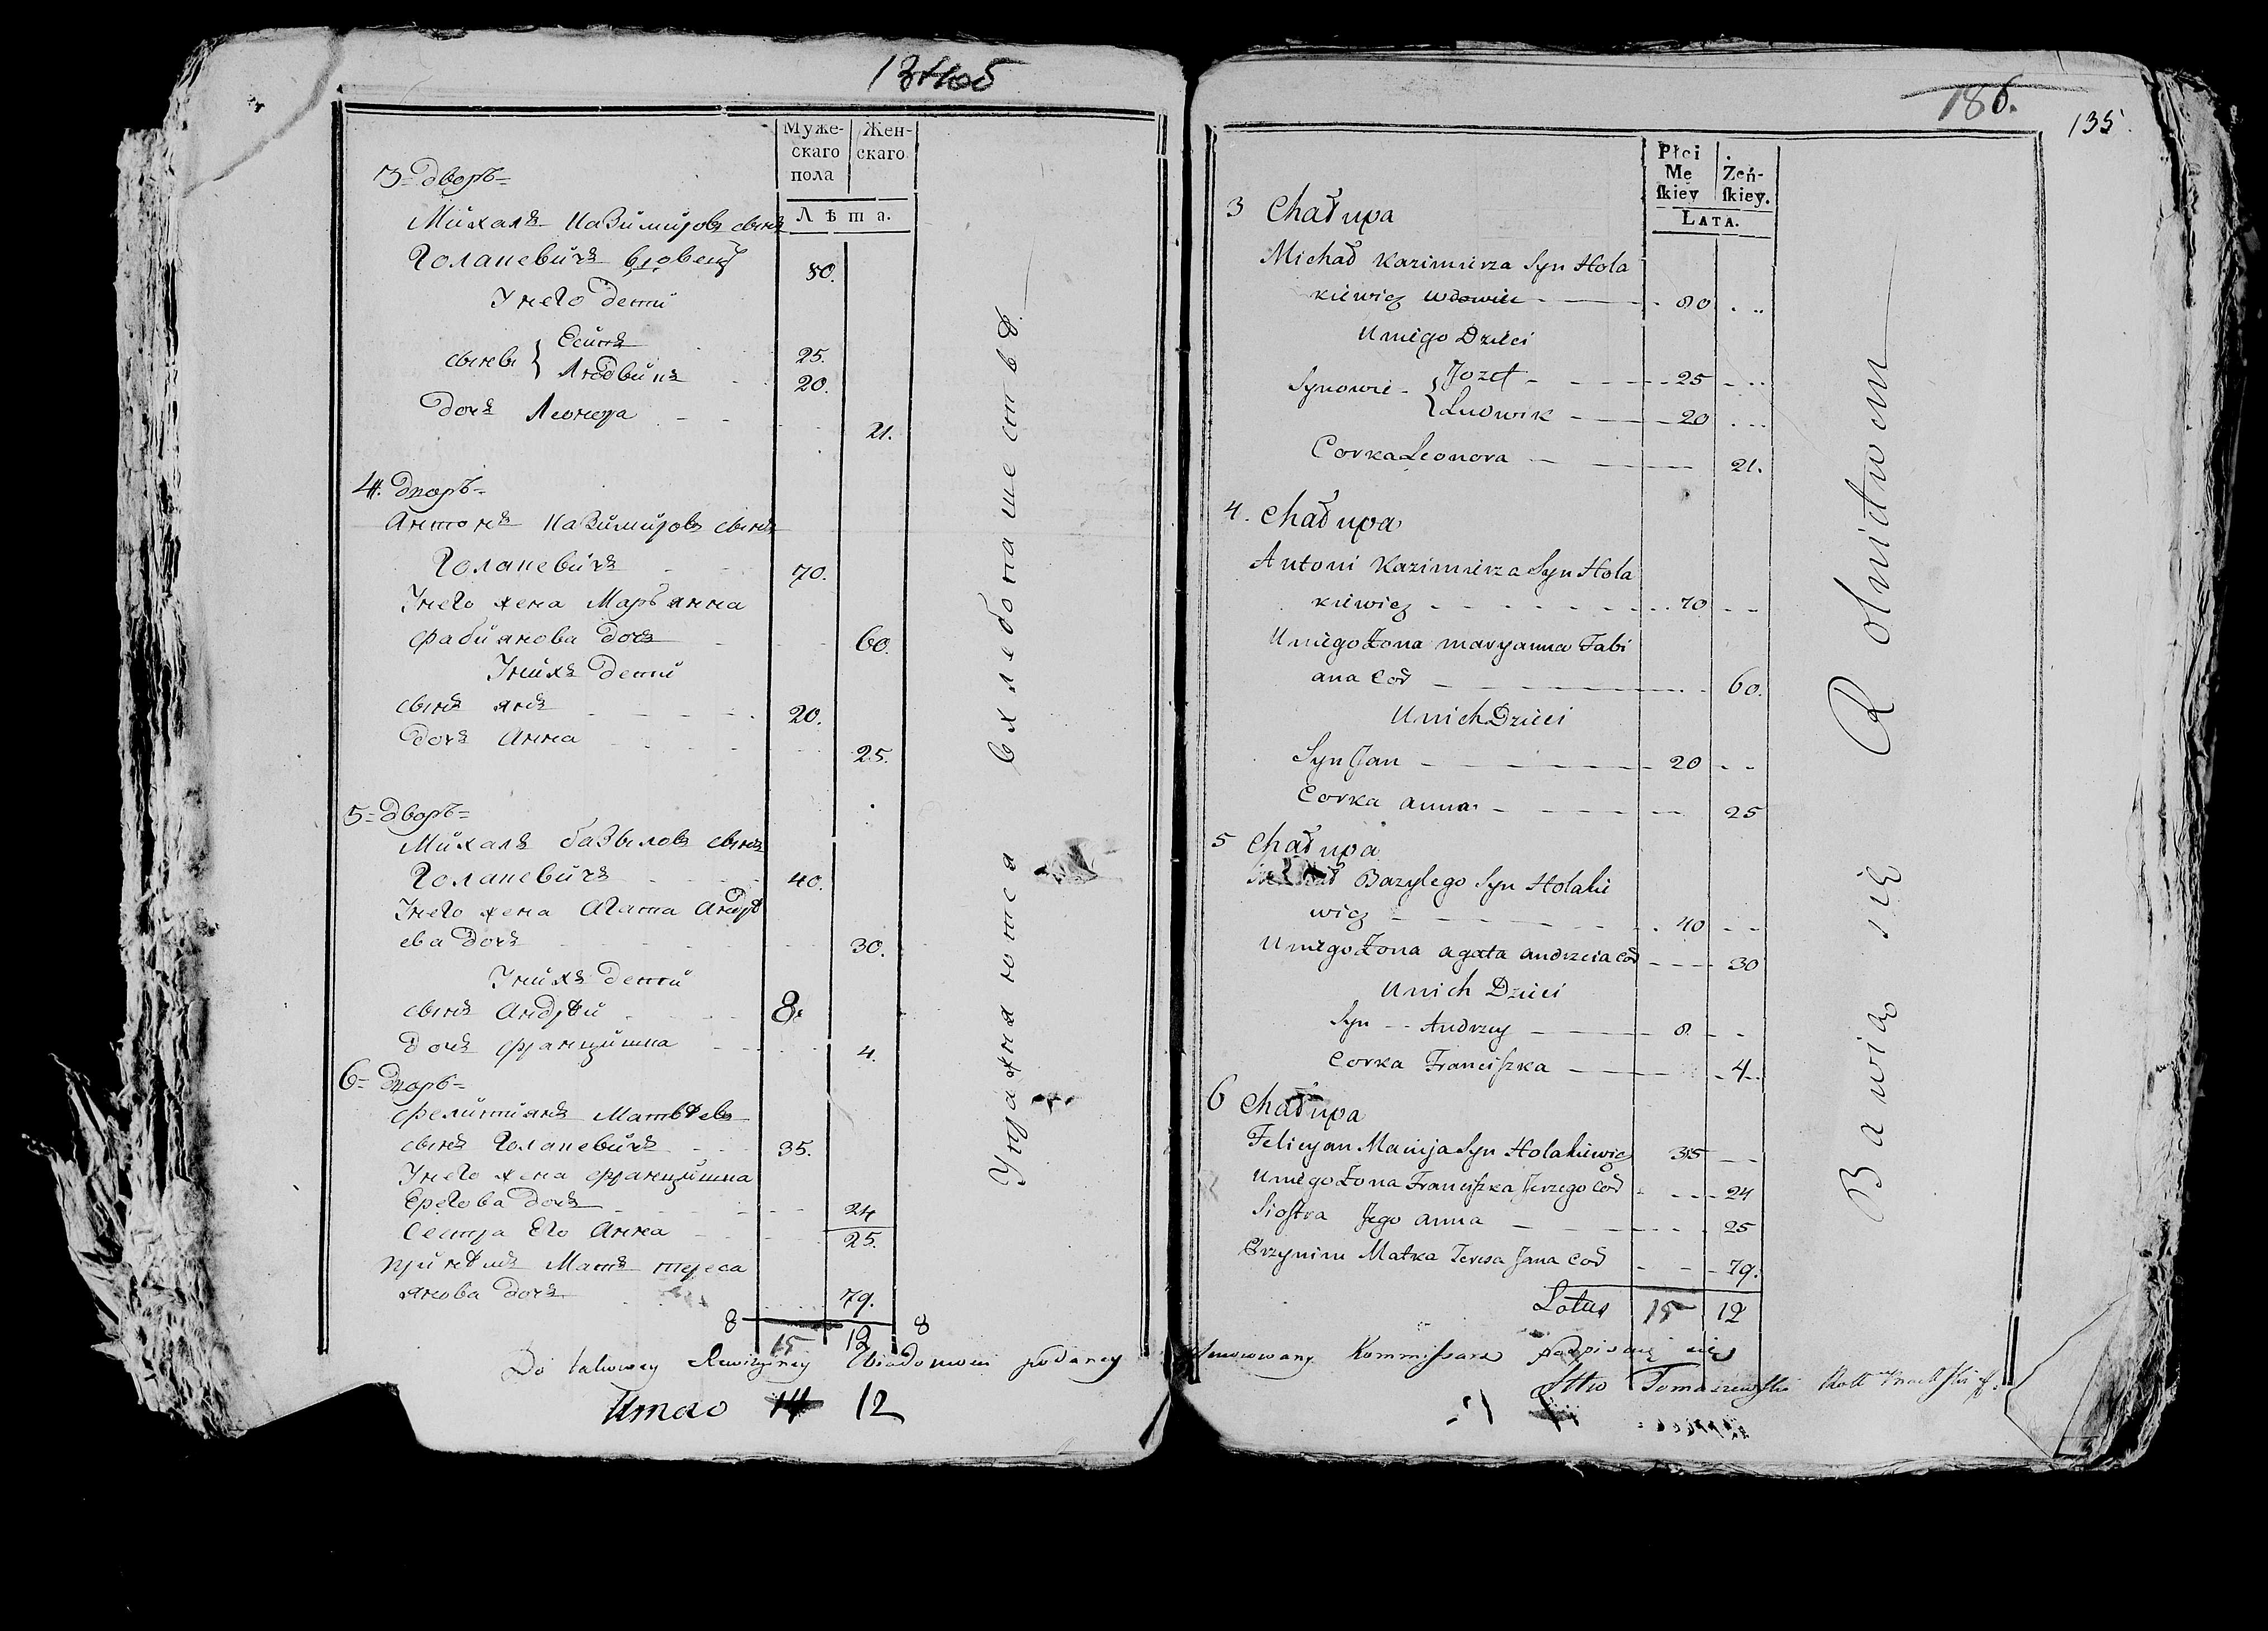 Муже-
скаго
пола
Жен-
скаго
Лѣта.
3= дворъ=
Михалъ Казимировъ сынъ
Голакевичъ вдовецъ 80.
У него дети
сыны { Есипъ 25.
Людвикъ 20.
дочь Леонора 21.
4. дворъ=
Антонъ Казимировъ сынъ
Голакевичъ 70.
У него жена Марьянна
Фабиянова дочь 60.
У нихъ дети
сынъ янъ 20.
дочь Анна 25.
5= дворъ=
Михалъ базылевъ сынъ
Голакевичъ 40.
У него жена Агата Андрѣ
ева дочь 30.
У нихъ дети
сынъ Андрѣй 8.
дочь францишка 4.
6= дворъ=
фелитиянъ Матвѣевъ
сынъ Голакевичъ 35.
У него жена францишка
Ерегова дочь 24
Сестра Его Анна 25.
При нѣмъ Мать тереса
янова дочь 79.
8 15 12 8
Упражняются в хлебопашествѣ
Do takowey Rewizyney podaney
Итго 14 12
186.
135.
Płci
Mę
ſkiey
Żeń-
ſkiey.
LATA.
3 Chałupa
Michał Kazimierza Syn Hola
kiewicz wdowiec 80
U niego Dzieci
Synowie { Jozef 25
Ludwik 20
Corka Leonora 21.
4. Chałupa
Antoni Kazimierza Syn Hola
kiewicz 70
U niego Żona maryanna Fabi
ana Coŕ 60.
U nich Dzieci
Syn Jan 20
Corka anna 25
5 Chałupa
Bazylego Syn Holakie
wicz 40
U niego Żona agata andrzeia Coŕ 30
U nich Dzieci
Syn Andrzey 8.
Corka Franciſzka 4
6 Chałupa
Felicyan Macieja Syn Holakiewicz 35
U niego Żona Franciſzka Jerzego Coŕ 24
Sioſtra Jego anna 25
Przy nim Matka Teresa Jana Coŕ 79.
Latus 15 12
Bawią się Rolnictwem
Kommiſsarz podpisuię się
Tomaszewski